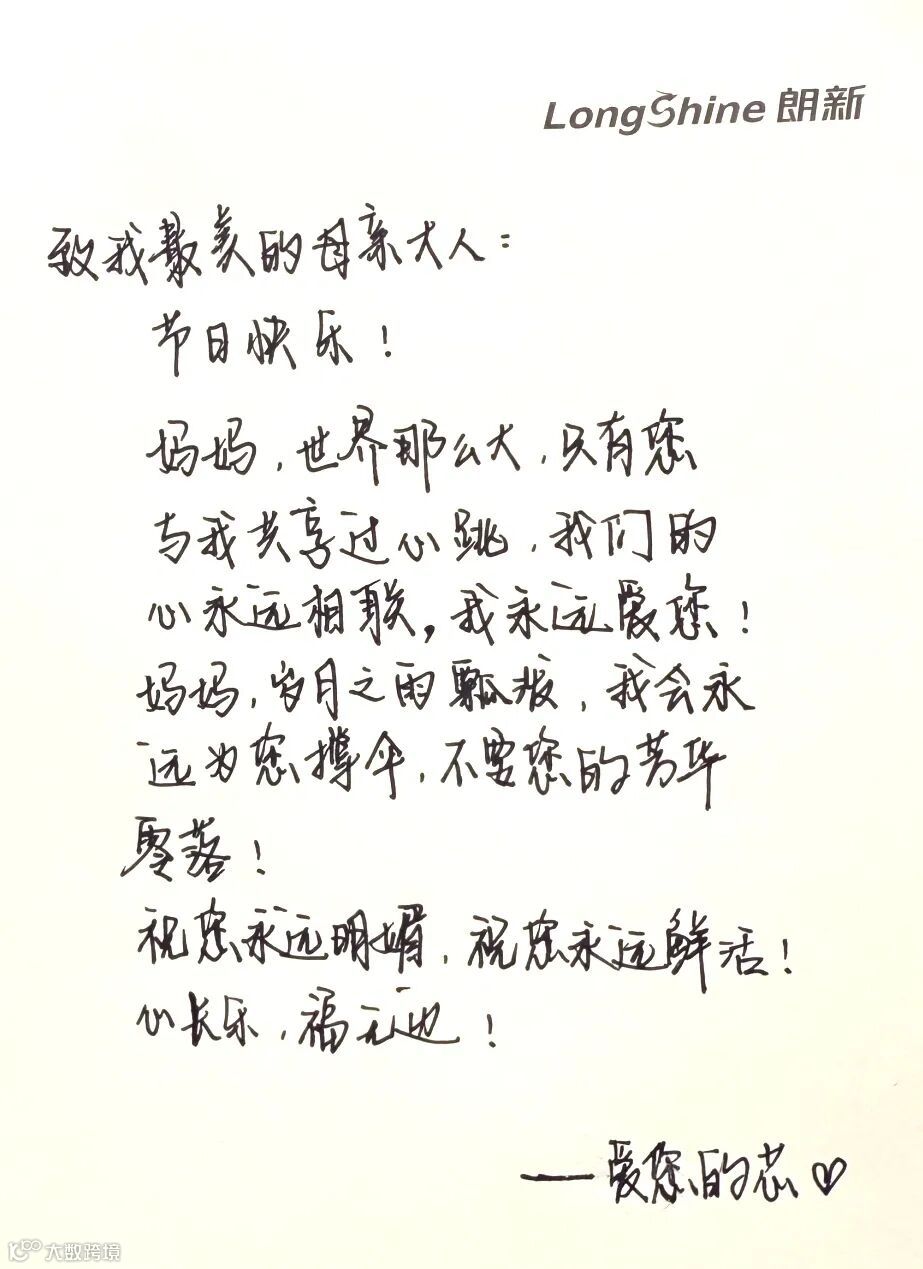 LongShine 朗新
致我最美的母亲大人：
节日快乐！
妈妈，世界那么大，只有您
与我共享过心跳，我们的
心永远相联，我永远爱您！
妈妈，岁月之雨瓢泼，我会永
远为您撑伞，不要您的芳华
零落！
祝您永远明媚，祝您永远鲜活！
心长乐，福无边！
——爱您的芯♡
大数跨境